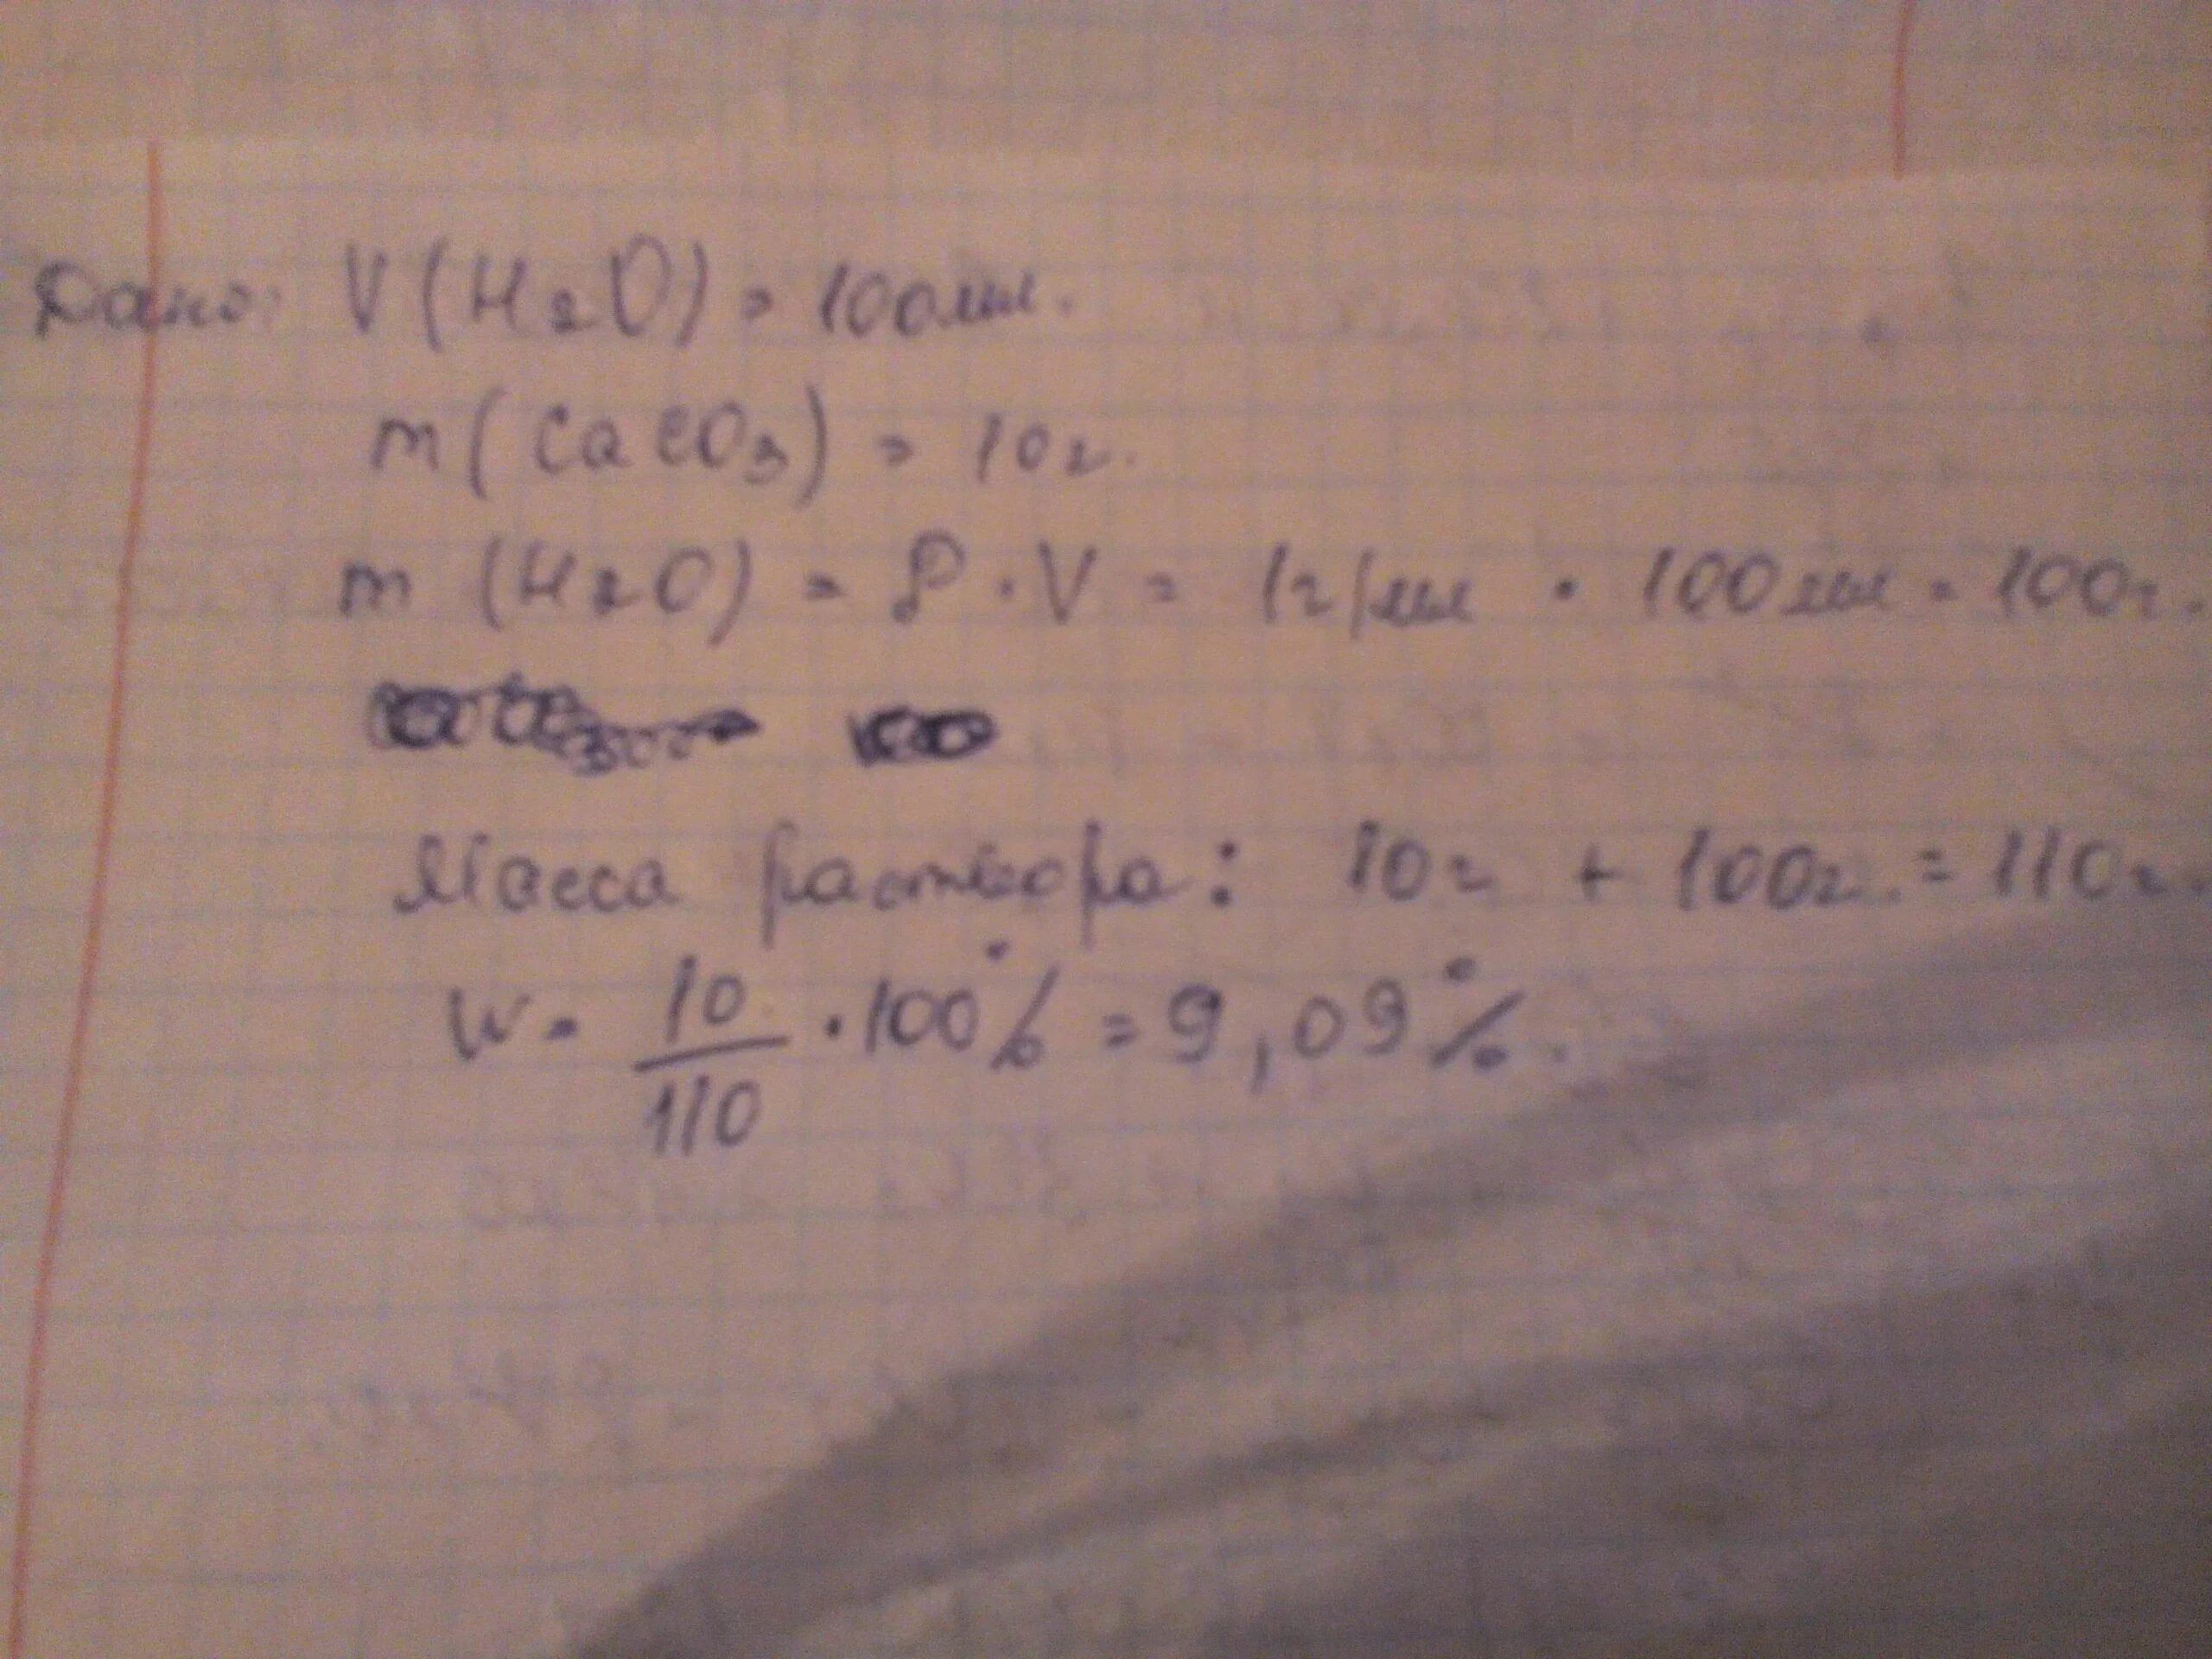 Дано: V(H₂O) = 100мл.
m(CaCO₃) = 10г.
m (H₂O) = ρ · V = 1г/мл · 100мл = 100г.
Масса раствора: 10г + 100г. = 110г.
W = 10/110 · 100% = 9,09%.